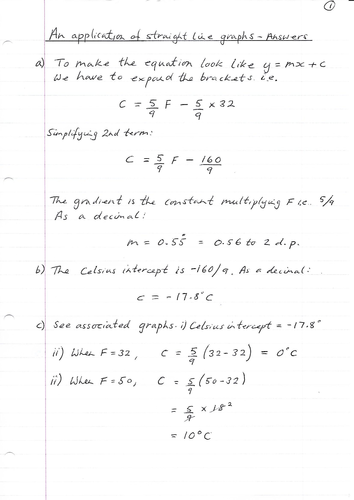 1
An application of straight line graphs - Answers
a) To make the equation look like y = mx + c
We have to expand the brackets i.e.
C = 5/9 F - 5/9 x 32
Simplifying 2nd term:
C = 5/9 F - 160/9
The gradient is the constant multiplying F i.e. 5/9
As a decimal:
m = 0.55̇ = 0.56 to 2 d.p.
b) The Celsius intercept is -160/9. As a decimal:
c = -17.8°C
c) See associated graphs. i) Celsius intercept = -17.8°
ii) When F = 32, C = 5/9 (32-32) = 0°C
ii) When F = 50, C = 5/9 (50-32)
= 5/9 x 18 2
= 10°C